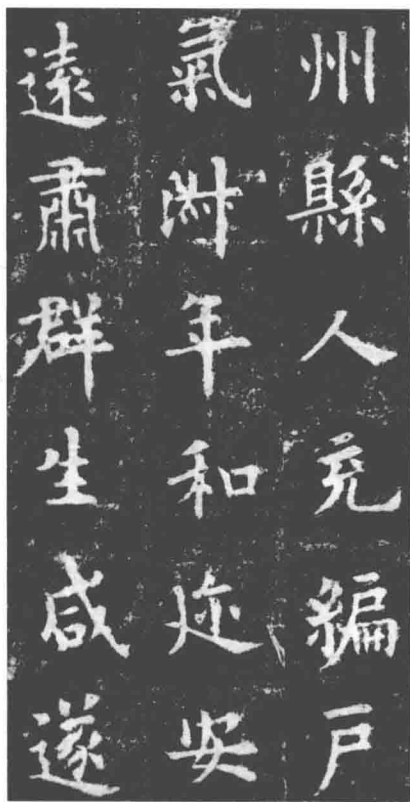 州縣人充編戶
氣淑年和迩安
遠肅群生咸遂